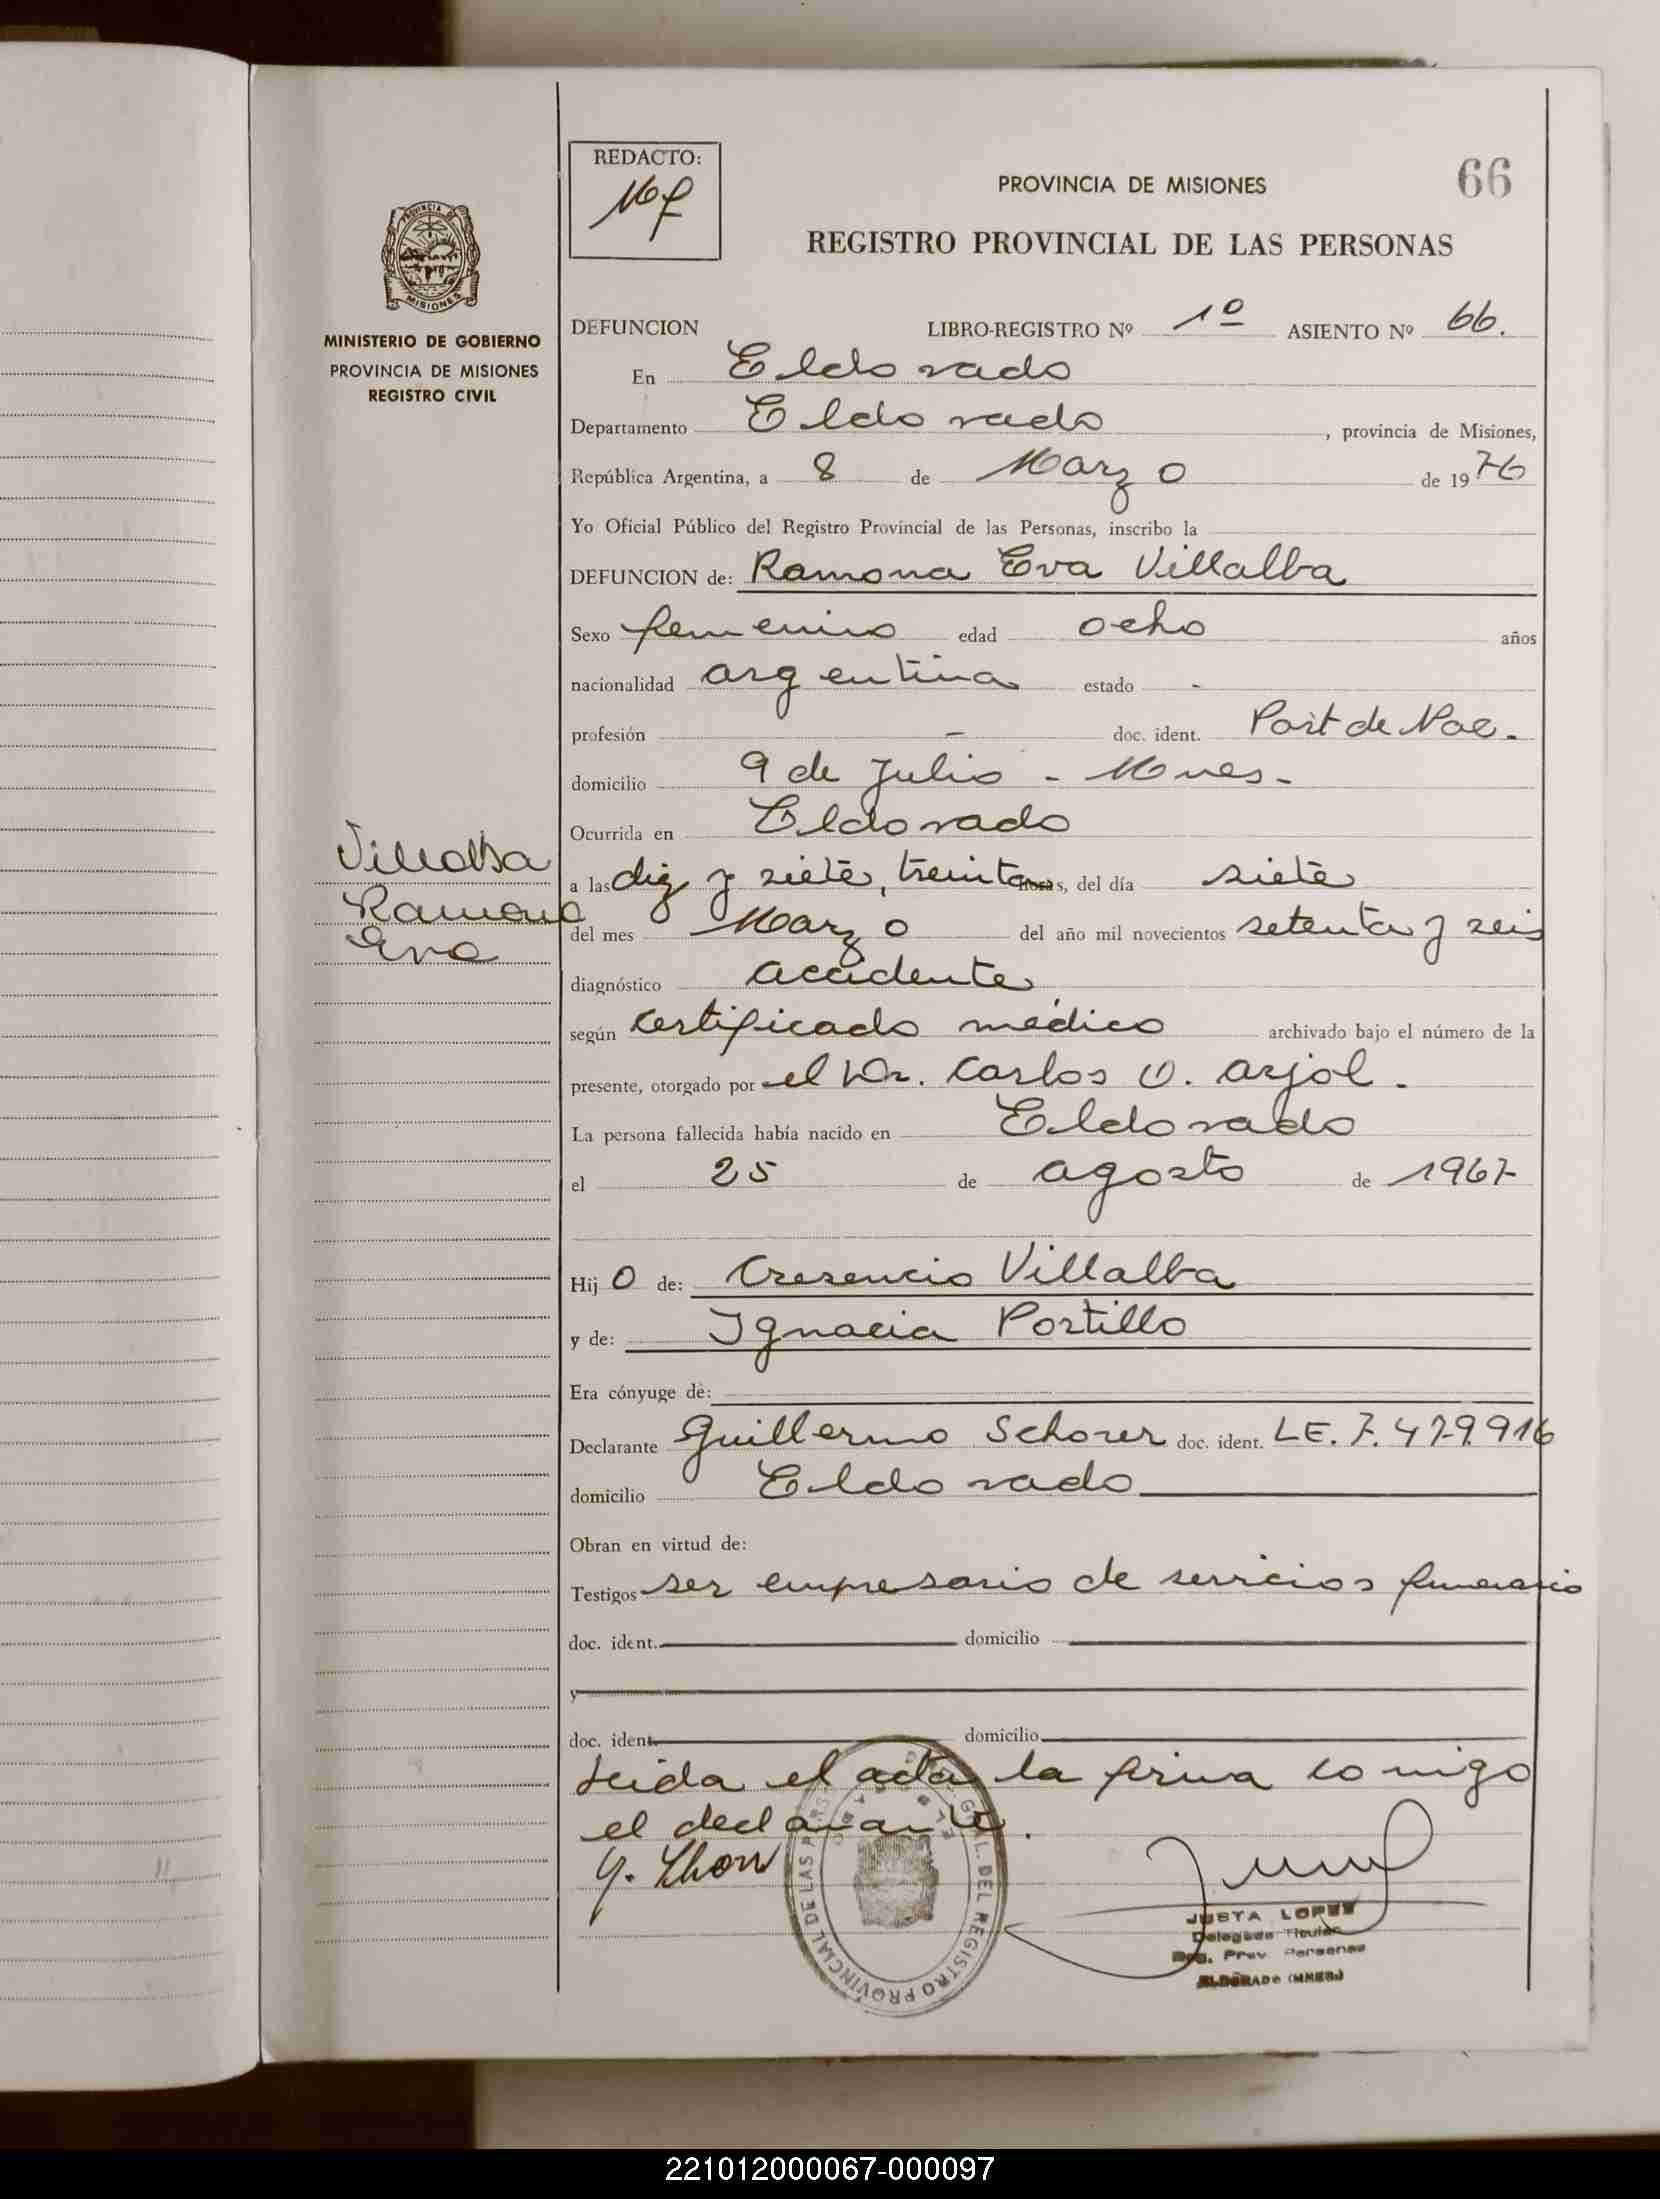 REDACTO:
PROVINCIA DE MISIONES
66
REGISTRO PROVINCIAL DE LAS PERSONAS
PROVINCIA DE
MISIONES
MINISTERIO DE GOBIERNO
PROVINCIA DE MISIONES
REGISTRO CIVIL
DEFUNCION LIBRO-REGISTRO Nº 1º ASIENTO Nº 66.
En Eldorado
Departamento Eldorado, provincia de Misiones,
República Argentina, a 8 de Marzo de 1976
Yo Oficial Público del Registro Provincial de las Personas, inscribo la
DEFUNCION de: Ramona Eva Villalba
Sexo femenino edad ocho años
nacionalidad argentina estado -
profesión - doc. ident. Part de Nac.
domicilio 9 de Julio - Mnes-
Ocurrida en Eldorado
Villalba
Ramona
Eva
a las diz y siete, treinta horas, del día siete
del mes Marzo del año mil novecientos setenta y seis
diagnóstico accidente
según certificado médico archivado bajo el número de la
presente, otorgado por el Dr. Carlos O. Arjol.
La persona fallecida había nacido en Eldorado
el 25 de agosto de 1967
Hij O de: Cresencio Villalba
y de: Ignacia Portillo
Era cónyuge de:
Declarante Guillermo Schorer doc. ident. LE. 7.479.916
domicilio Eldorado
Obran en virtud de:
Testigos ser empresario de servicios funerario
doc. ident. domicilio
y
doc. ident. domicilio
Leida el acta la firma comigo
el declarante.
JUSTA LOPEZ
Delegada Titular
Reg. Prov. Personas
ELDORADO (MNES.)
DEL REGISTRO PROVINCIAL DE LAS
221012000067-000097